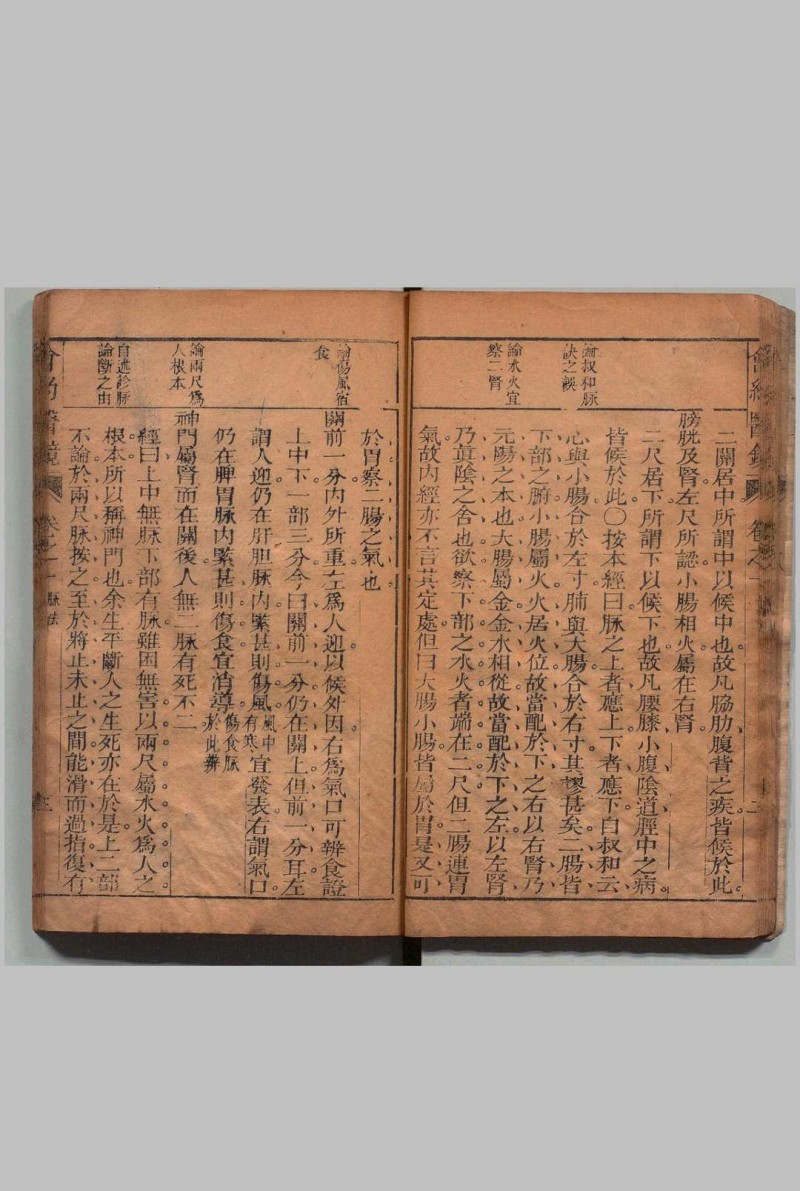 會約醫鏡 卷之一
論叔和脉
訣之誤
論水火宜
察二腎
二關居中所謂中以候中也故凡脇肋腹背之疾皆候於此
膀胱及腎左尺所認小腸相火屬在右腎
二尺居下所謂下以候下也故凡腰膝小腹陰道脛中之病
皆候於此〇按本經曰脉之上者應上下者應下自叔和云
心與小腸合於左寸肺與大腸合於右寸其謬甚矣二腸皆
下部之腑小腸屬火火居火位故當配於下之右以右腎乃
元陽之本也大腸屬金金水相從故當配於下之左以左腎
乃眞陰之舍也欲察下部之水火者端在二尺但二腸連胃
氣故內經亦不言其定處但曰大腸小腸皆屬於胃是又可
於胃察二腸之氣也
論傷風宿
食
關前一分內外所重左爲人迎以候外因右爲氣口可辨食證
上中下一部三分今曰關前一分仍在關上但前一分耳左
謂人迎仍在肝胆脉內緊甚則傷風風中有寒宜發表右謂氣口
仍在脾胃脉內緊甚則傷食宜消導傷食脉於此辨
論兩尺爲
人根本
神門屬腎而在關後人無二脉有死不二
經曰上中無脉下部有脉雖困無害以兩尺屬水火爲人之
自述診脉
論斷之由
根本所以稱神門也余生平斷人之生死亦在於是上二部
不論於兩尺脉按之至於將止未止之間能滑而過指復有
會約醫鏡 卷之一 脉法